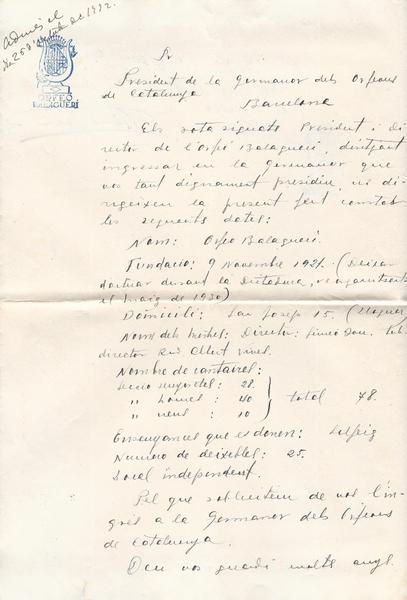 admès el
dia 25 d' de 1932.
ORFEÓ
BALAGUERÍ
Sr
President de la Germanor dels Orfeons
de Catalunya
Barcelona
Els sota signats President i di
rector de l'Orfeó Balaguerí, desitjant
ingressar en la Germanor que
vos tant dignament presidiu, us di-
rigeixen la present fent constar
les seguents dates:
Nom: Orfeo Balagueri.
Fundacio: 9 Novembre 1921. (Deixar
d'actuar durant la Dictadura, reorganitzant-
el maig de 1930)
Domicili: San Josep 15. (Lloguer)
Noms dels Mestres: Director:
director Albert vives.
Nombre de cantaires:
Seccio senyoretes: 28.
" homes : 40 total 78.
" nens : 10
Ensenyances que es donen: Solfeig
Numero de deixebles: 25.
Local independent.
Pel que sol·liciten de vos l'in-
gres a la Germanor dels Orfeons
de Catalunya.
Deu vos guardi molts anys.